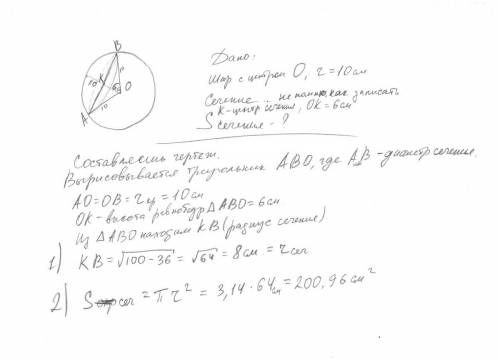 B
10
K
6
O
10
A
Дано:
Шар с центром О, r = 10 см
Сечение .. не помню, как записать
К - центр сечения, ОК = 6 см
S сечения - ?
Составляешь чертеж.
Вырисовывается треугольник АВО, где АВ - диаметр сечения.
АО = ОВ = r = 10 см
ОК - высота равнобедр △АВО = 6 см
Из △АВО находим КВ (радиус сечения)
1) КВ = √100 - 36 = √64 = 8 см = r сеч
2) S сеч = π r² = 3,14 · 64 см = 200,96 см²